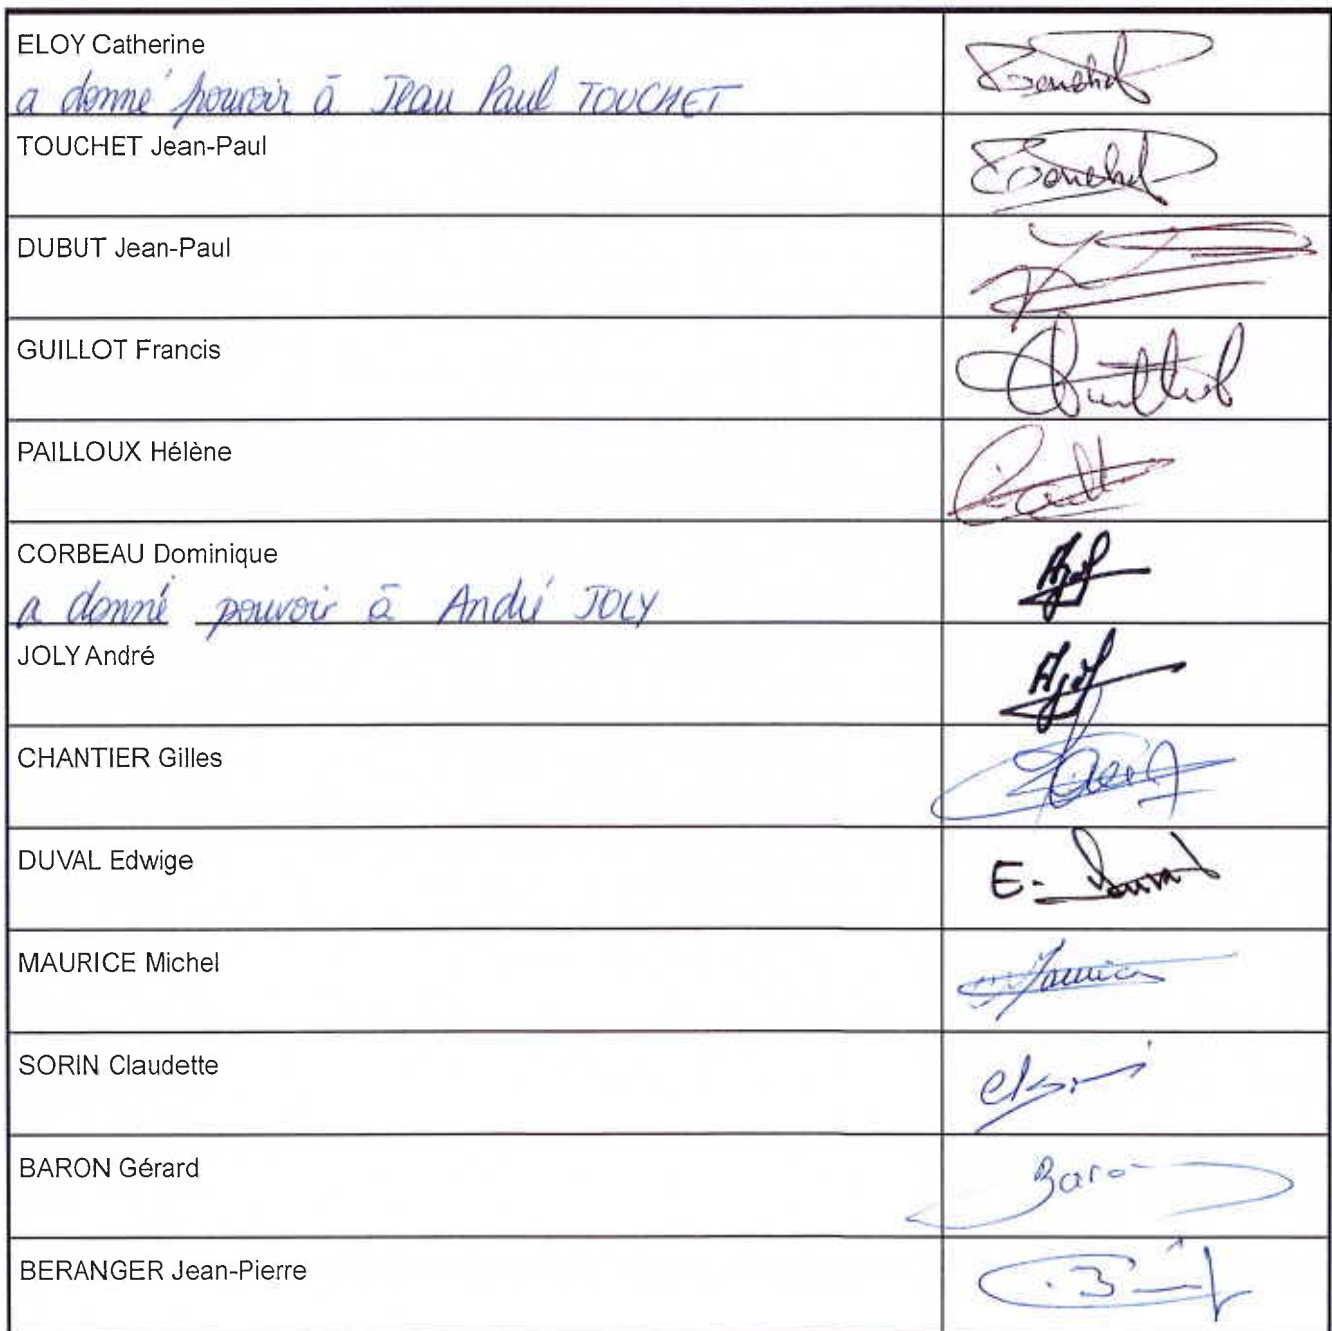 ELOY Catherine
a donné pouvoir à Jean Paul TOUCHET
TOUCHET Jean-Paul
DUBUT Jean-Paul
GUILLOT Francis
PAILLOUX Hélène
CORBEAU Dominique
a donné pouvoir à André JOLY
JOLY André
CHANTIER Gilles
DUVAL Edwige
E. Duval
MAURICE Michel
Maurice
SORIN Claudette
BARON Gérard
Baron
BERANGER Jean-Pierre